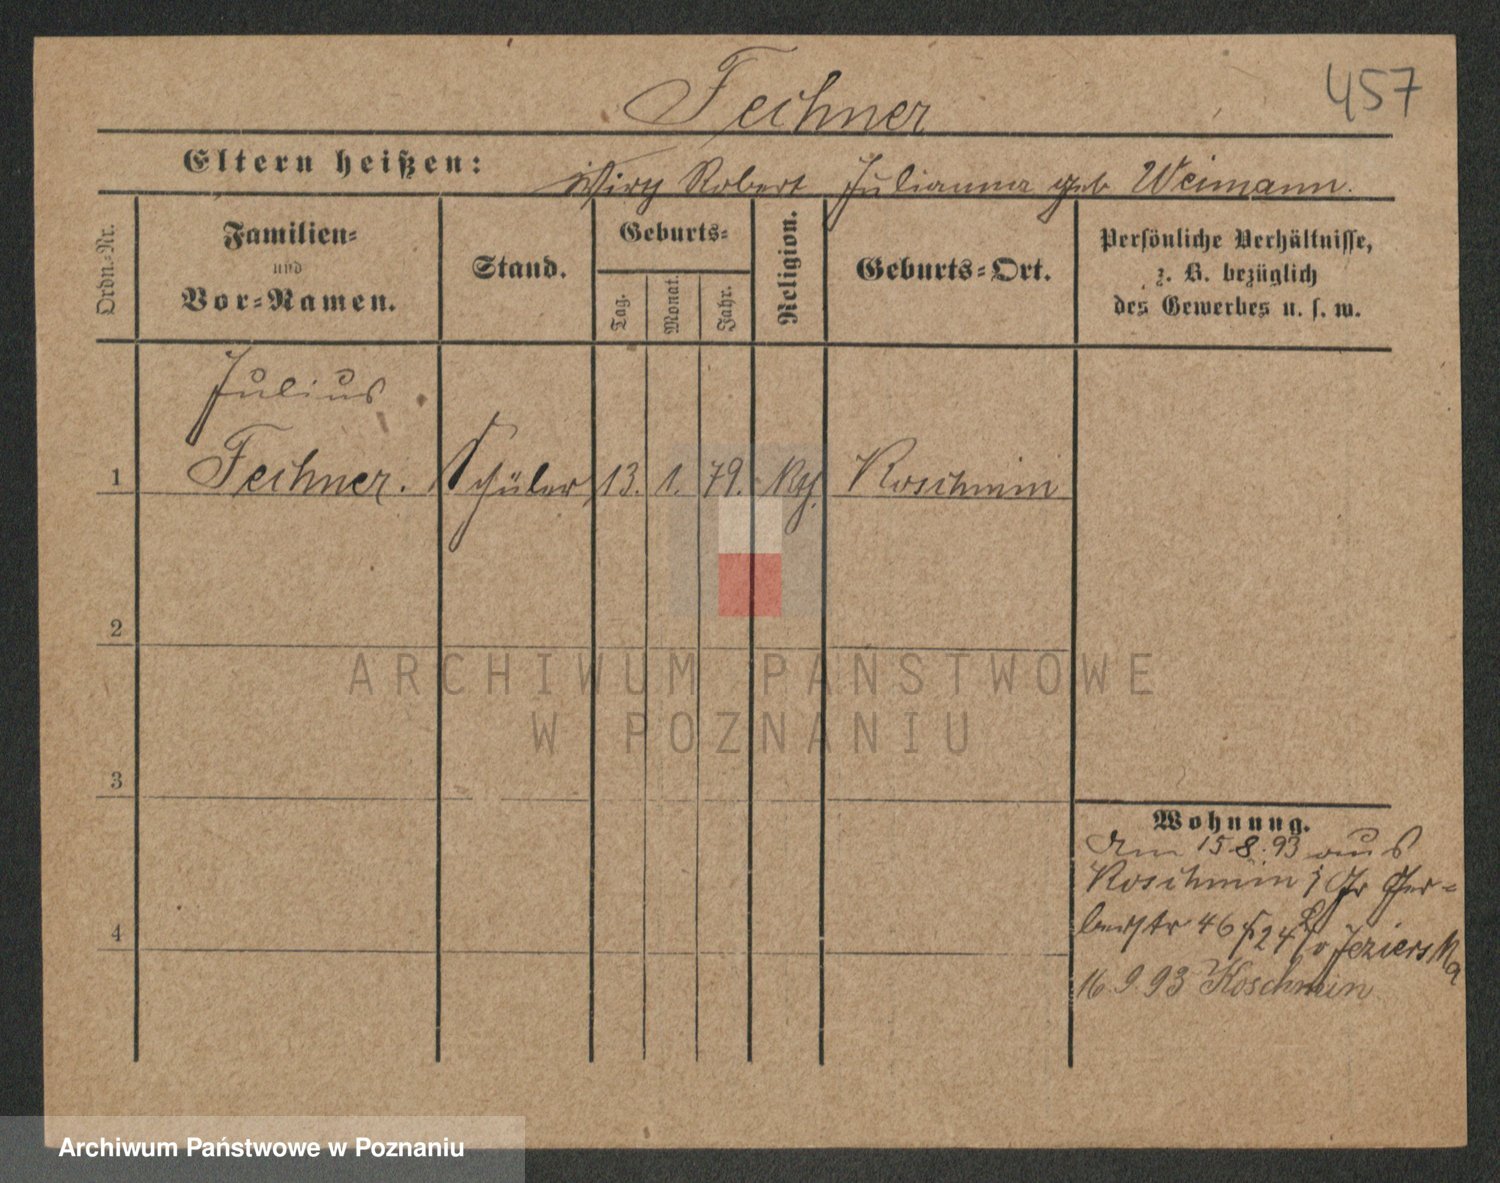 457
Fechner
Eltern heißen: Wirth Robert Julianna geb Weimann.
Ordn.-Nr.
Familien-
und
Vor-Namen.
Stand.
Geburts-
Tag.
Monat.
Jahr.
Religion.
Geburts-Ort.
Persönliche Verhältnisse,
z. B. bezüglich
des Gewerbes u. s. w.
Julius
1 Fechner. Schüler 13. 1. 79. Kth. Koschmin
2
3
4
Wohnung.
Am 15 8. 93 aus
Koschmin Gr Ger-
berstr 46 24 Jezierska
16 9. 93 Koschmin
ARCHIWUM PAŃSTWOWE
W POZNANIU
Archiwum Państwowe w Poznaniu